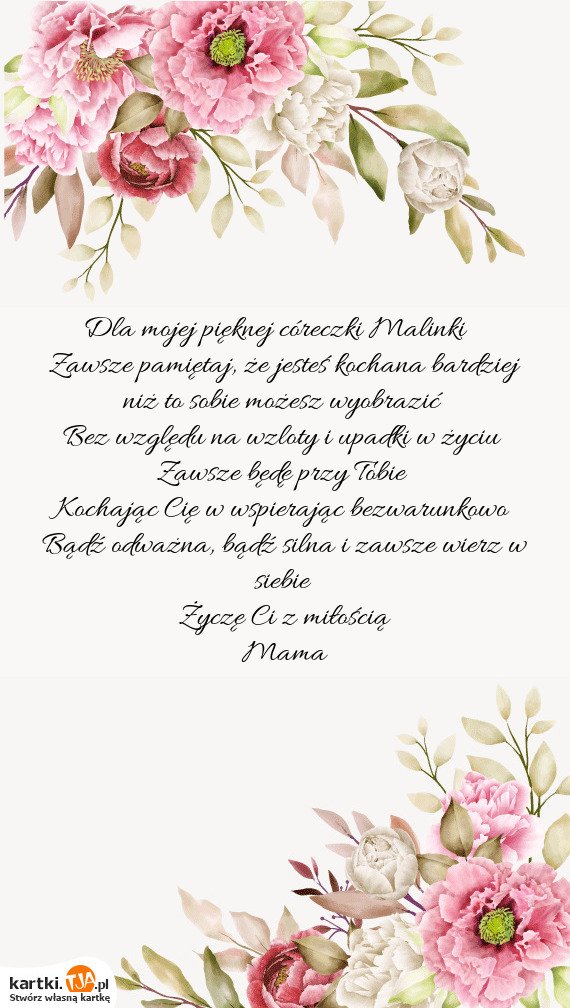 Dla mojej pięknej córeczki Malinki
Zawsze pamiętaj, że jesteś kochana bardziej
niż to sobie możesz wyobrazić
Bez względu na wzloty i upadki w życiu
Zawsze będę przy Tobie
Kochając Cię w wspierając bezwarunkowo
Bądź odważna, bądź silna i zawsze wierz w
siebie
Życzę Ci z miłością
Mama
kartki.TJA.pl
Stwórz własną kartkę